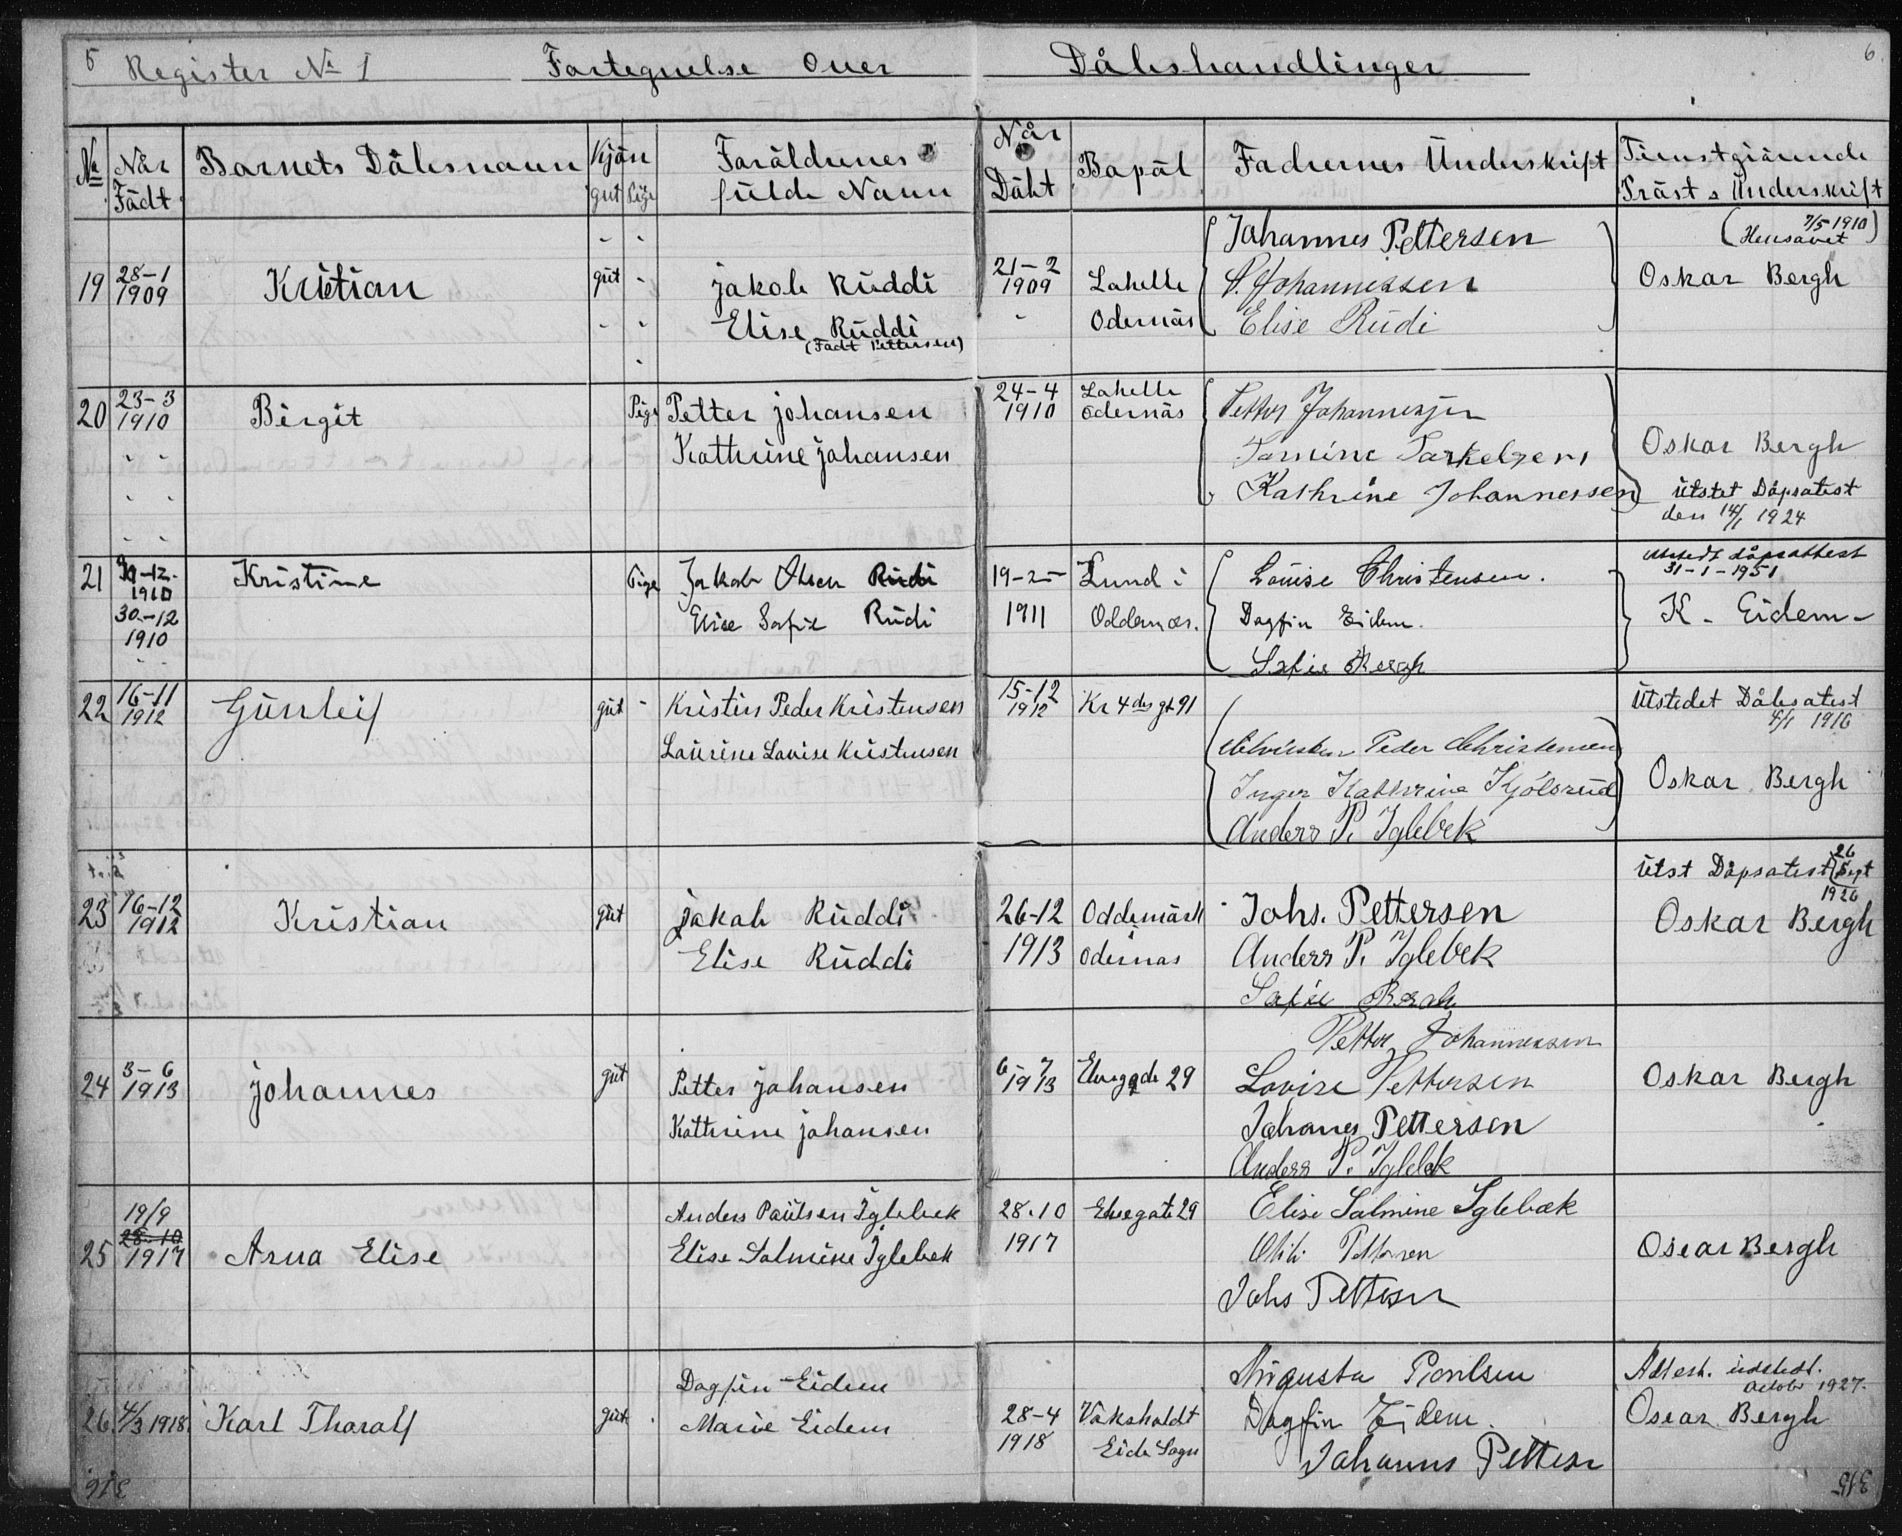 5 Register No 1 Fortegnelse over Dåbshandlinger 6
No
Når Fådt
Barnets Dåbsnavn
Kjön gut Pige
Foräldrenes fulde Navn
Når Däbt
Bopäl
Fadrernes Underskrift
Tienstgiörende Präst s Underskrift
19
28-1 1909
Kristian
gut
jakob Ruddi
Elise Ruddi
(Fådt Pettersen)
21-2 1909
Lahelle
Odernäs
Johannes Pettersen
P. Johannessen
Elise Rudi
7/5 1910
Oskar Bergh
20
23-3 1910
Birgit
Pige
Petter johansen
Kathrine johansen
24-4 1910
Lahelle
Odernäs
Petter Johannessen
Tomine Tarkelsen
Kathrine Johannessen
Oskar Bergh
Utstet Dåpsatest
den 14/1 1924
21
30-12 1910
Kristine
Pige
Jakob Olsen Rudi
Elise Sofie Rudi
19-2
1911
Lund i
Oddernæs.
Louise Christensen.
Dagfin Eidem.
Sofie Bergh
utstedt dåpsattest
31-1-1951
K. Eidem
22
16-11 1912
Gunleif
gut
Kristin Peder Kristensen
Laurine Lovise Kristensen
15-12 1912
Kr 4 des gt 91
Christen Peder Christensen
Inger Kathrine Kjölsrud
Anders P. Iglebek
Utstedet Dåbsatest
1916
Oskar Bergh
23
16-12 1912
Kristian
gut
jakob Ruddi
Elise Ruddi
26-12
1913
Oddemärk
odernas
Johs. Pettersen
Anders P. Iglebek
Sofie Bergh
Utst Dåpsatest 26 Sept
1926
Oskar Bergh
24
3-6 1913
johannes
gut
Petter johansen
Kathrine johansen
6-7 1913
Elvegade 29
Petter Johannessen
Lovise Pettersen
Johanes Pettersen
Anders P. Iglebek
Oskar Bergh
25
19/9
28-10
1917
Arna Elise
Anders Paulsen Iglebek
Elise Salmine Iglebek
28.10
1917
Elvegate 29
Elise Salmine Iglebæk
Pettersen
Johs Pettersen
Oscar Bergh
26
4/3 1918
Karl Thoralf
gut
Dagfin Eidem
Marie Eidem
28-4
1918
Våksholdt
Eide Sogn
Augusta Poulsen
Dagfin Eidem.
Johannes Pettersen
Attest. udstedt.
October 1927.
Oscar Bergh
316
315